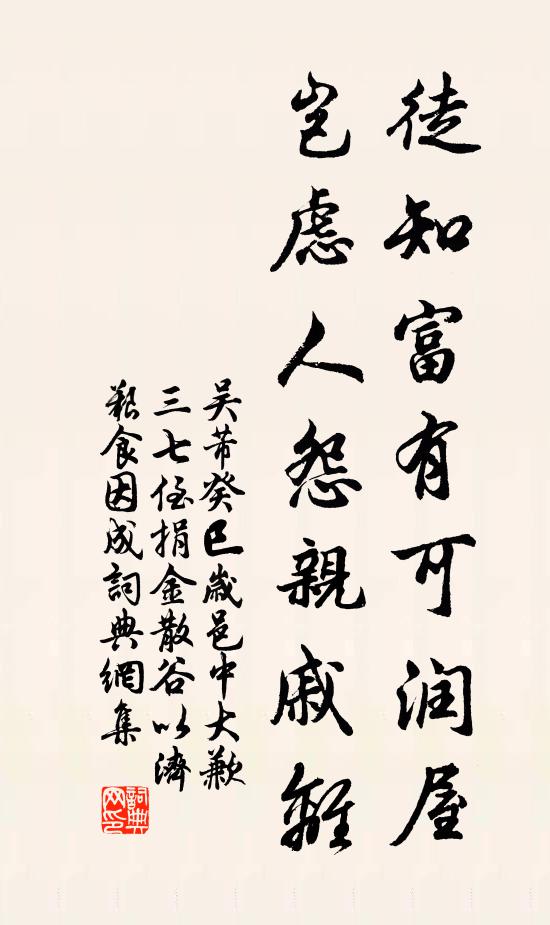 徒知富有可润屋
岂虑人怨親戚離
吴芾癸巳歲邑中大歉
三七侄捐金散谷以濟
艱食因成詞典網集
詞典网印